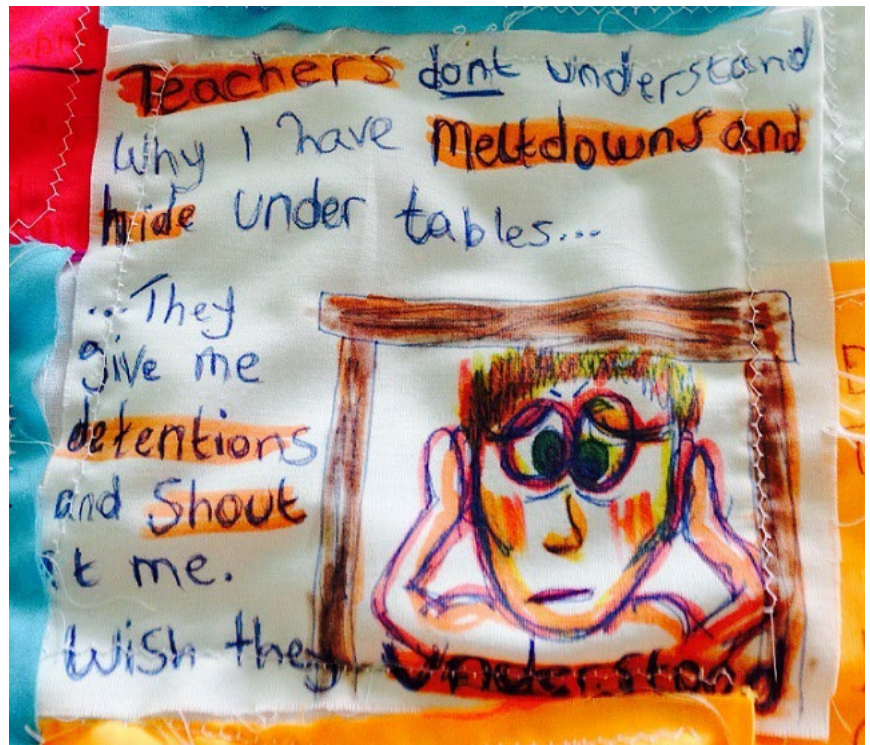 Teachers dont understand
why I have Meltdowns and
hide under tables...
...They
give me
detentions
and Shout
t me.
Wish they Understand